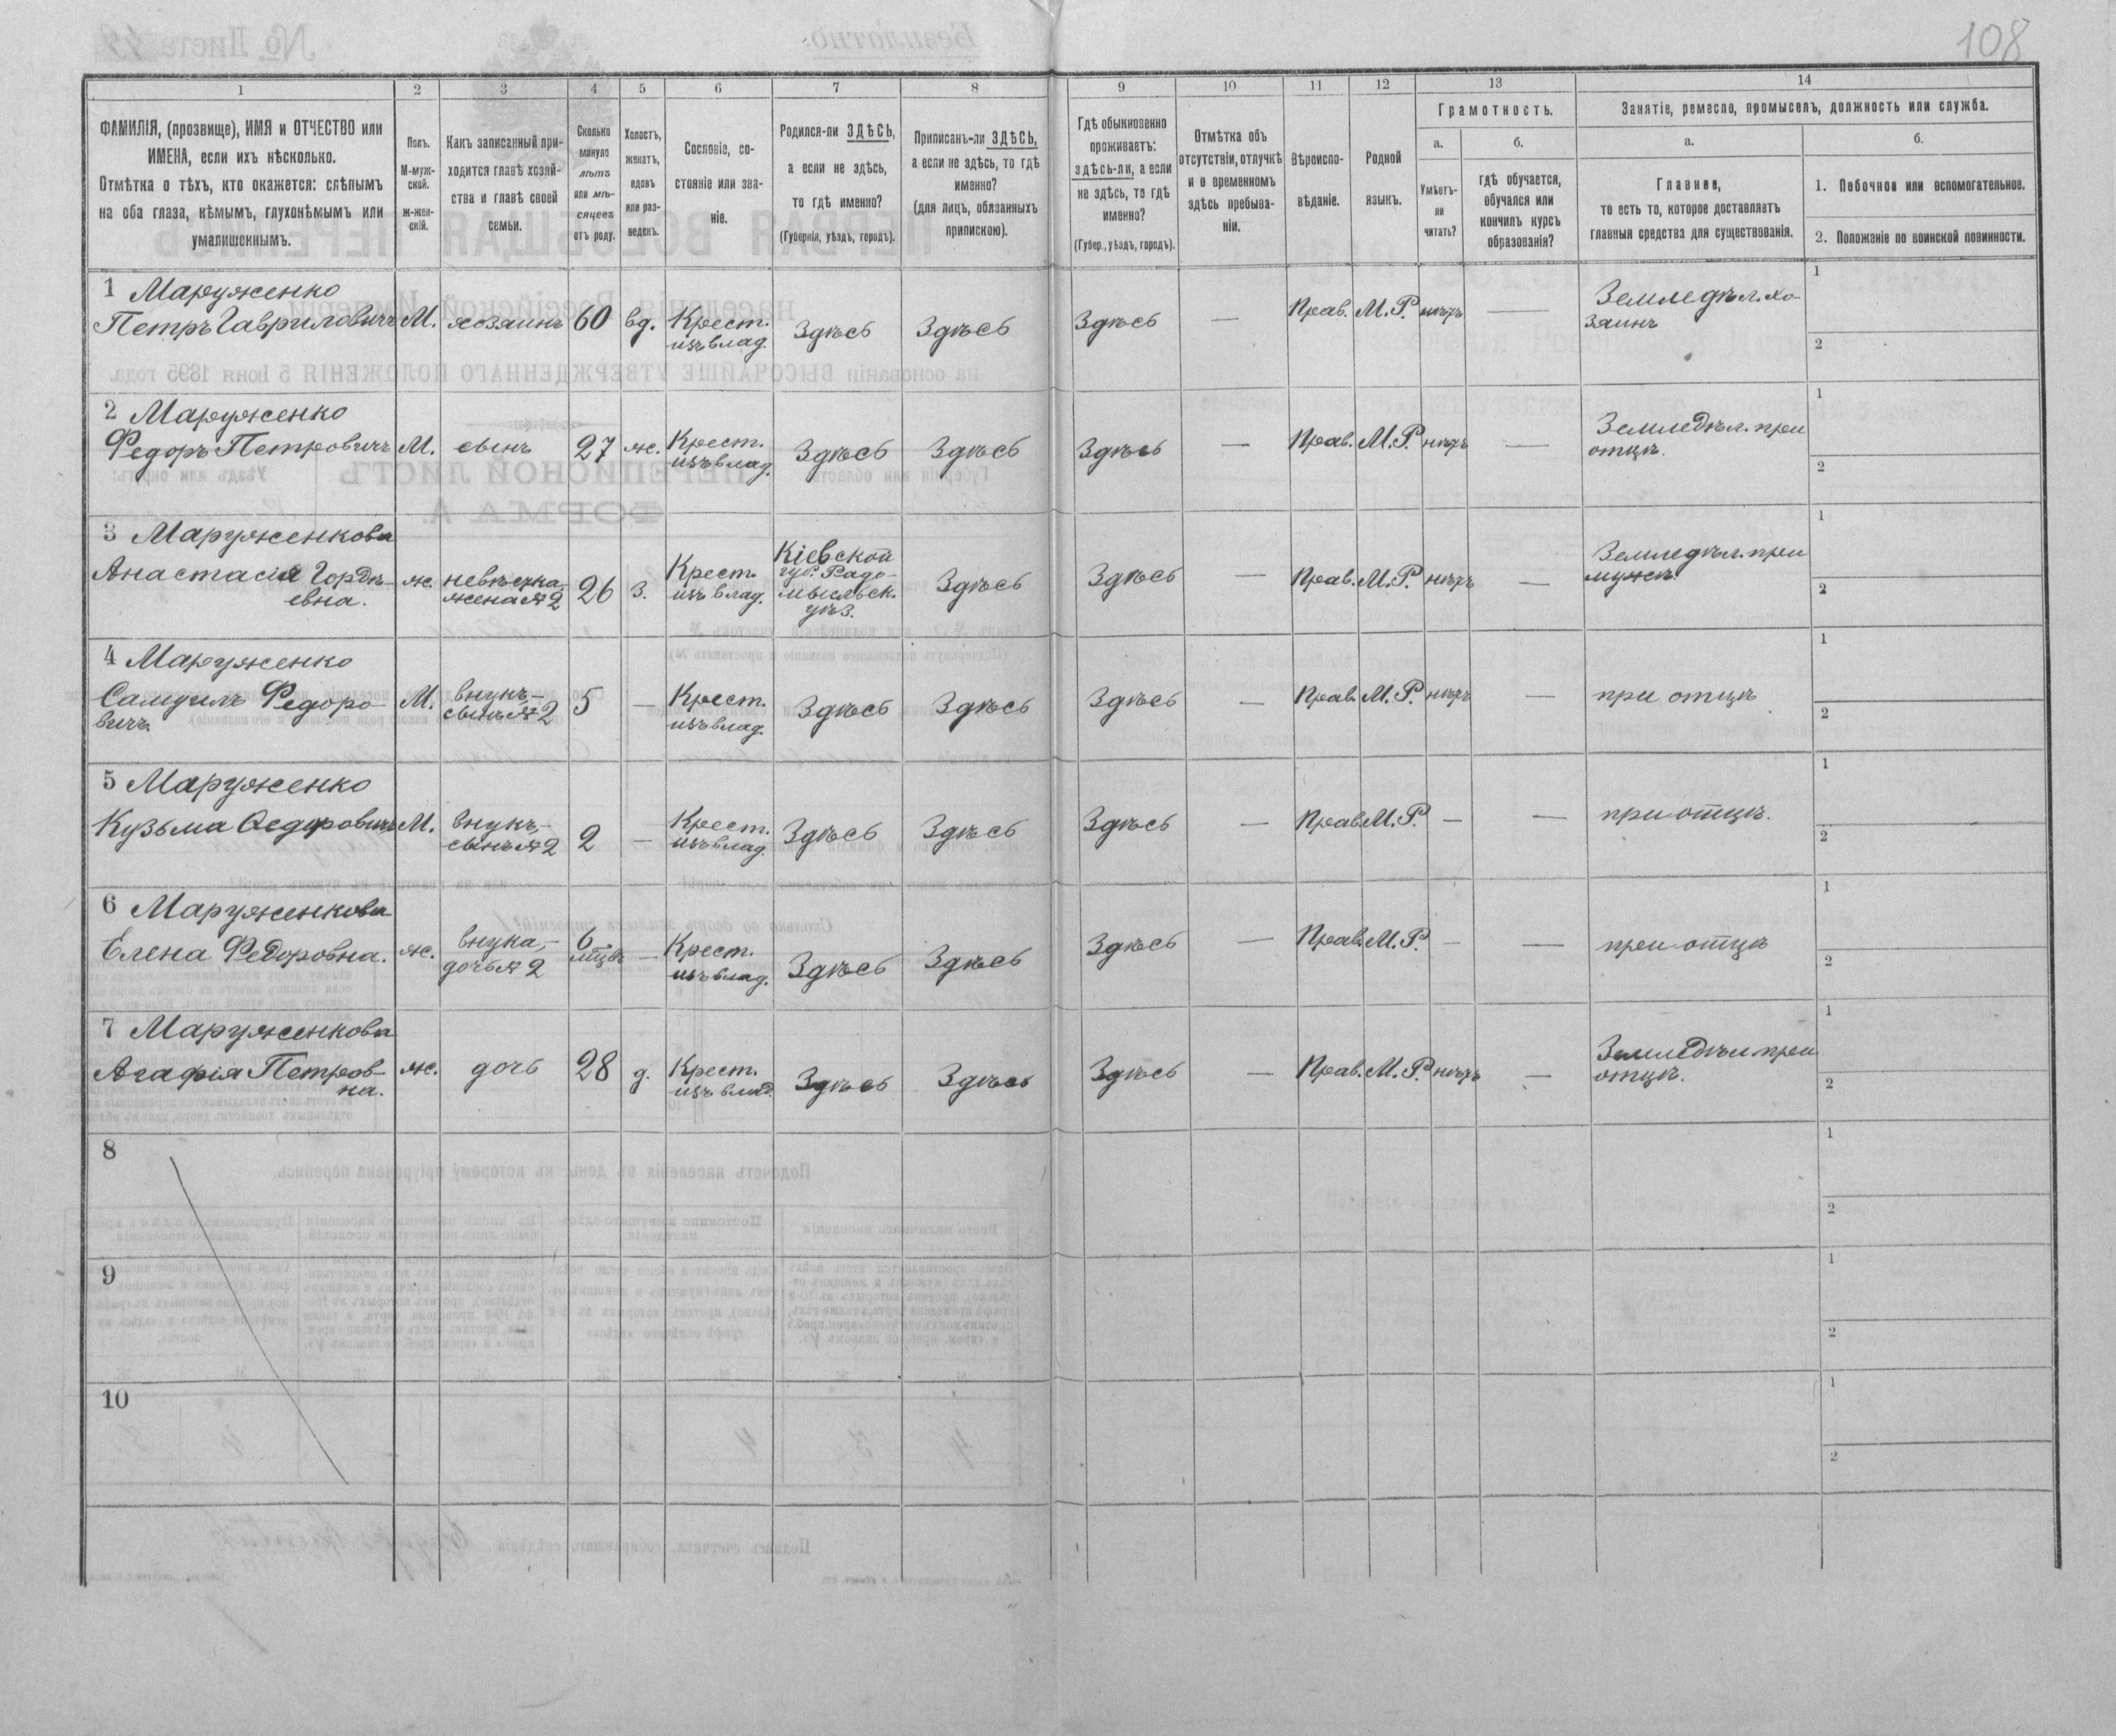 108
1 2 3 4 5 6 7 8 9 10 11 12 13 14
ФАМИЛІЯ, (прозвище), ИМЯ и ОТЧЕСТВО или
ИМЕНА, если ихъ нѣсколько.
Отмѣтка о тѣхъ, кто окажется: слѣпымъ
на оба глаза, нѣмымъ, глухонѣмымъ или
умалишеннымъ.
Полъ.
М-муж-
ской.
Ж-жен-
скій.
Какъ записанный при-
ходится главѣ хозяй-
ства и главѣ своей
семьи.
Сколько
минуло
лѣтъ
или мѣ-
сяцевъ
отъ роду.
Холостъ,
женатъ,
вдовъ
или раз-
веденъ.
Сословіе, со-
стояніе или зва-
ніе.
Родился-ли ЗДѢСЬ,
а если не здѣсь,
то гдѣ именно?
(Губернія, уѣздъ, городъ).
Приписанъ-ли ЗДѢСЬ,
а если не здѣсь, то гдѣ
именно?
(для лицъ, обязанныхъ
припиской).
Гдѣ обыкновенно
проживаетъ:
здѣсь-ли, а если
не здѣсь, то гдѣ
именно?
(Губер., уѣздъ, городъ).
Отмѣтка объ
отсутствіи, отлучкѣ
и о временномъ
здѣсь пребыва-
ніи.
Вѣроиспо-
вѣданіе.
Родной
языкъ.
Грамотность.
а.
Умѣетъ-
ли
читать?
б.
гдѣ обучается,
обучался или
кончилъ курсъ
образованія?
Занятіе, ремесло, промыселъ, должность или служба.
а.
Главное,
то есть то, которое доставляетъ
главныя средства для существованія.
б.
1. Побочное или вспомогательное.
2. Положеніе по воинской повинности.
1 Маруженко
Петръ Гавриловичъ М. хозяинъ 60 вд. Крест.
изъ влад. Здѣсь Здѣсь Здѣсь — Прав. М.Р. нѣтъ — Земледѣл. хо-
зяинъ
1
2
2 Маруженко
Федоръ Петровичъ М. сынъ 27 ж. Крест.
изъ влад. Здѣсь Здѣсь Здѣсь — Прав. М.Р. нѣтъ — Земледѣл. при
отцѣ.
1
2
3 Маруженкова
Анастасія Гордѣ-
евна. ж. невѣстка,
жена №2 26 з. Крест.
изъ влад. Кіевской
губ. Радо-
мысльск.
уѣз. Здѣсь Здѣсь — Прав. М.Р. нѣтъ — Земледѣл. при
мужѣ.
1
2
4 Маруженко
Самуилъ Федоро-
вичъ. М. внукъ,—
сынъ №2 5 — Крест.
изъ влад. Здѣсь Здѣсь Здѣсь — Прав. М.Р. нѣтъ — при отцѣ
1
2
5 Маруженко
Кузьма Ѳедоровичъ М. внукъ,—
сынъ №2 2 — Крест.
изъ влад. Здѣсь Здѣсь Здѣсь — Прав. М.Р. — — при отцѣ.
1
2
6 Маруженкова
Елена Федоровна. ж. внука,—
дочь №2 6
мѣцвъ — Крест.
изъ влад. Здѣсь Здѣсь Здѣсь — Прав. М.Р. — — при отцѣ
1
2
7 Маруженкова
Агафія Петров-
на. ж. дочь 28 д. Крест.
изъ влад. Здѣсь Здѣсь Здѣсь — Прав. М.Р. нѣтъ — Земледѣл при
отцѣ.
1
2
8
1
2
9
1
2
10
1
2